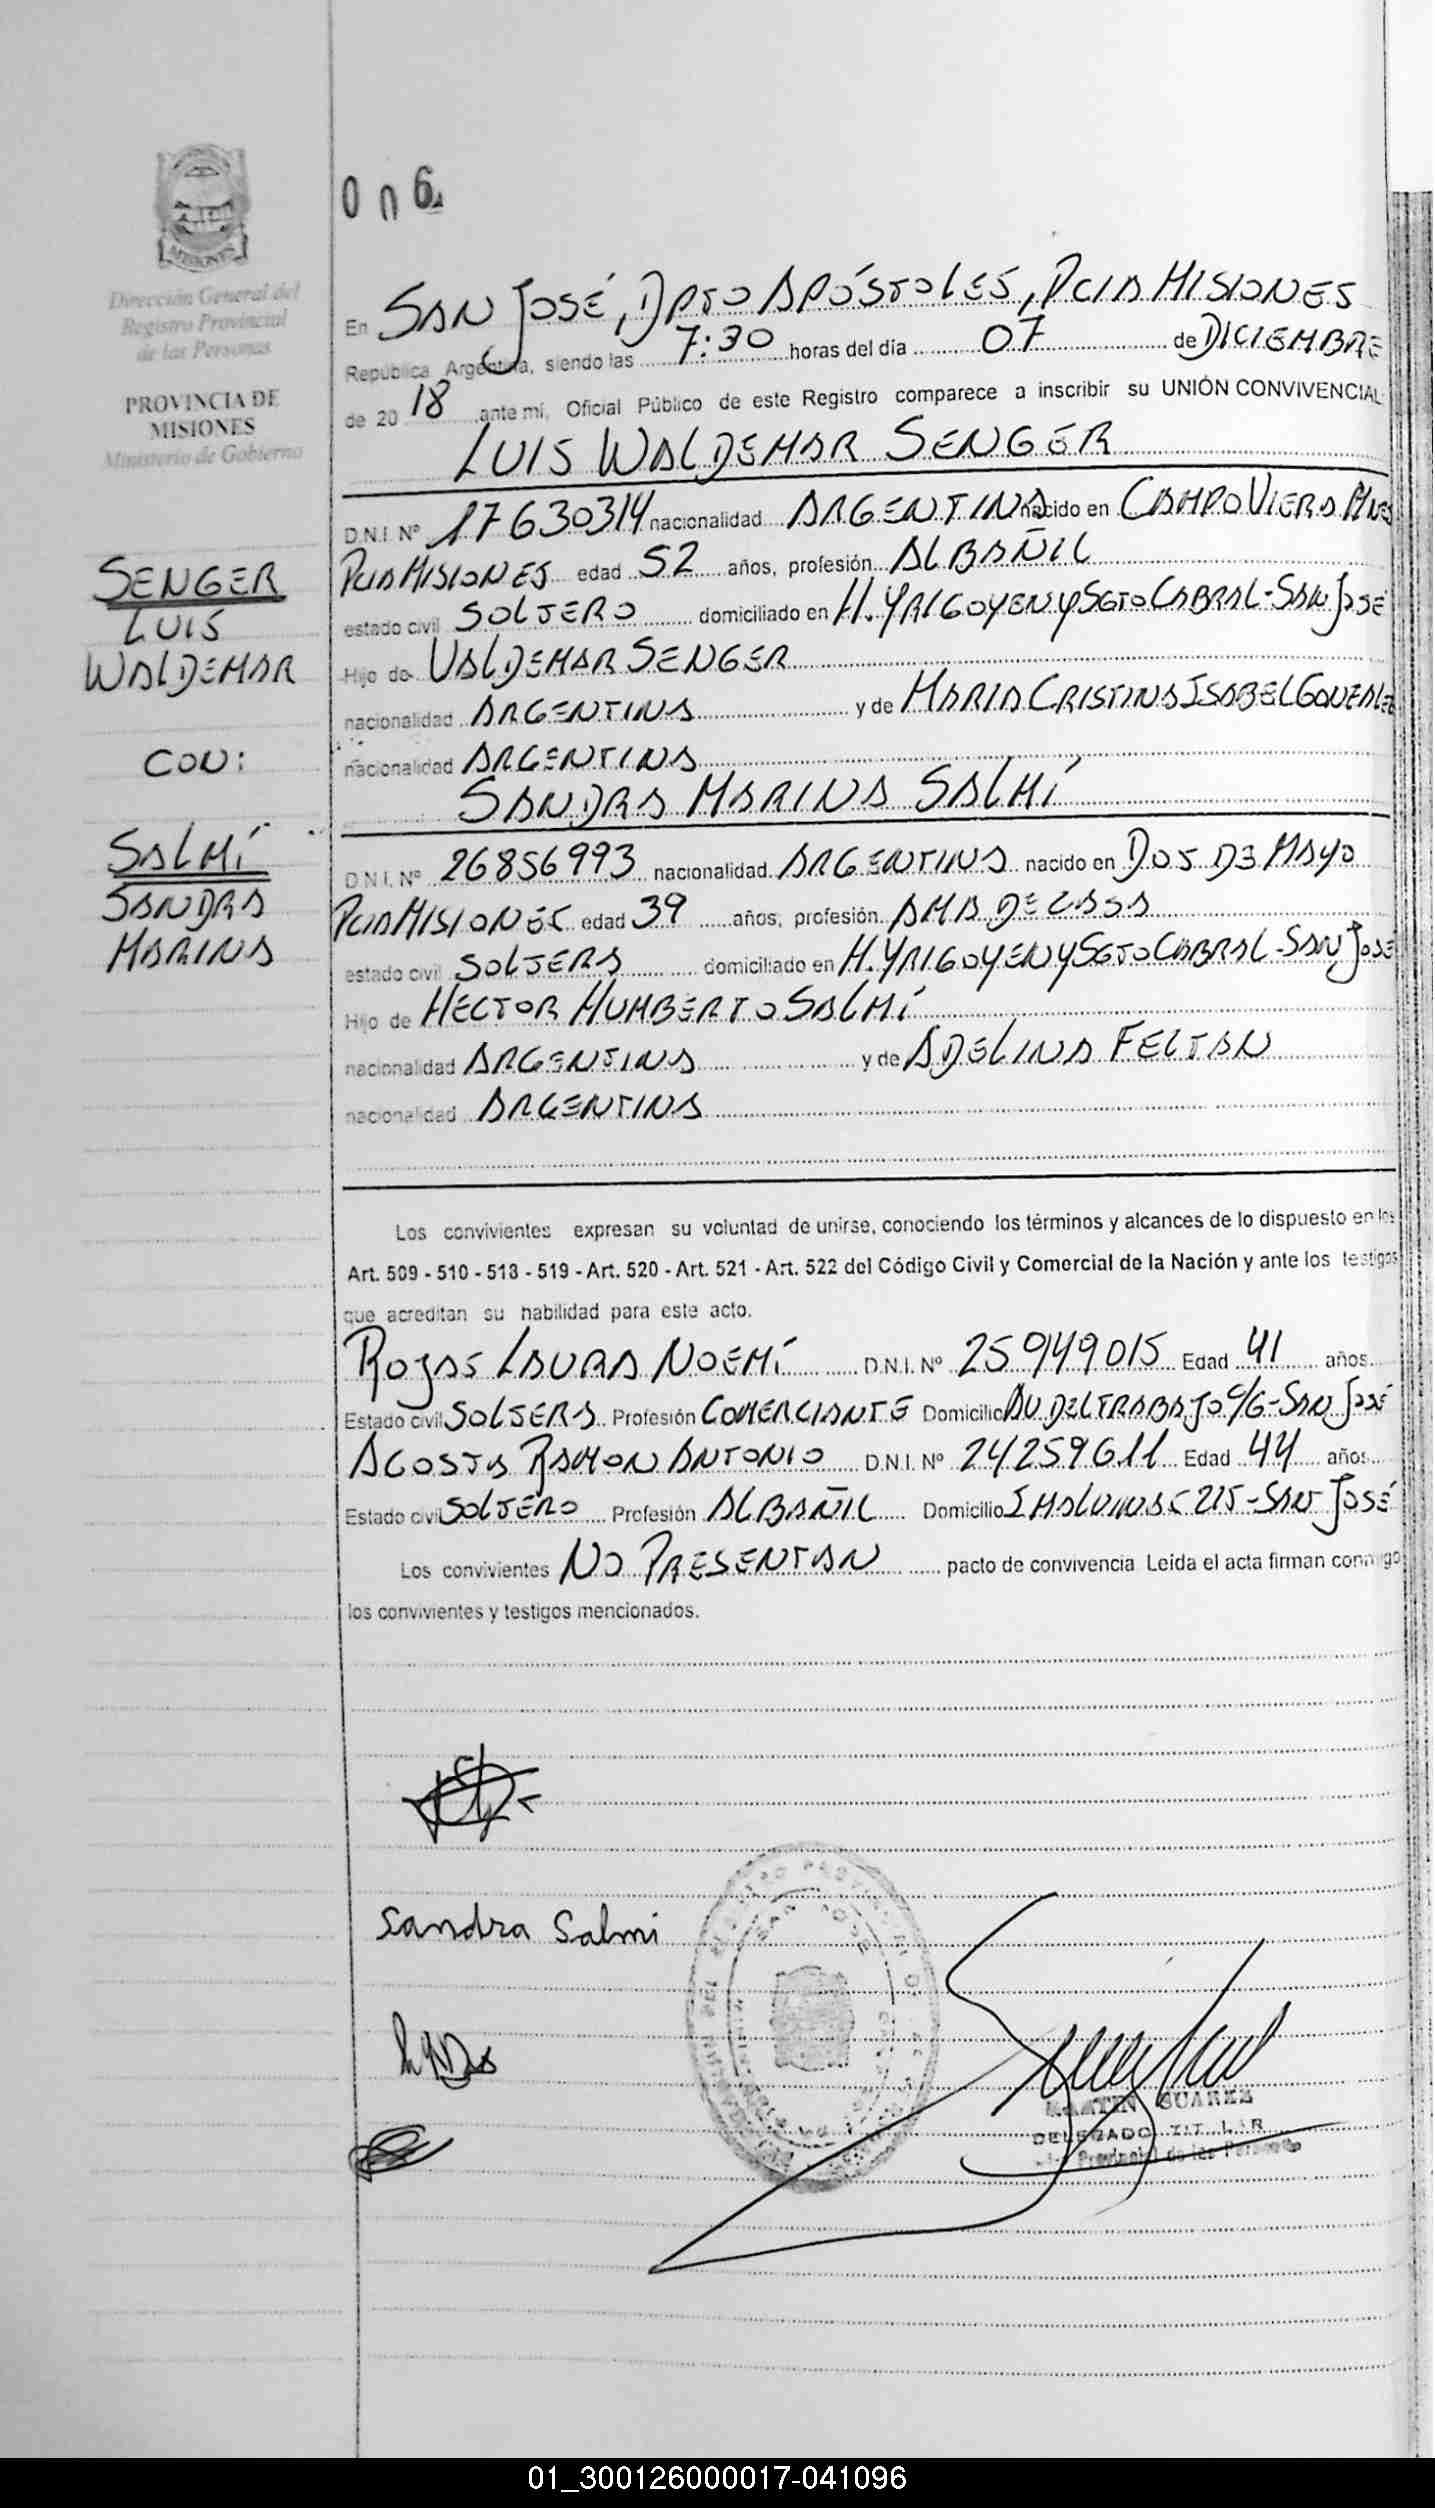 006
Dirección General del
Registro Provincial
de las Personas
PROVINCIA DE
MISIONES
Ministerio de Gobierno
SENGER
LUIS
WALDEMAR
CON:
SALMÍ
SANDRA
MARINA
En SAN JOSÉ, DPTO APÓSTOLES, PCIA MISIONES
República Argentina, siendo las 7:30 horas del día 07 de DICIEMBRE
de 20 18 ante mí, Oficial Público de este Registro comparece a inscribir su UNIÓN CONVIVENCIAL
LUIS WALDEMAR SENGER
D.N.I. Nº 17630314 nacionalidad ARGENTINA nacido en CAMPO VIERA MNES
PCIA MISIONES edad 52 años, profesión ALBAÑIL
estado civil SOLTERO domiciliado en H. YRIGOYEN Y SGTO CABRAL-SAN JOSÉ
Hijo de VALDEMAR SENGER
nacionalidad ARGENTINA y de MARIA CRISTINA ISABEL GONZALEZ
nacionalidad ARGENTINA
SANDRA MARINA SALMÍ
D.N.I. Nº 26856993 nacionalidad ARGENTINA nacido en DOS DE MAYO
PCIA MISIONES edad 39 años, profesión AMA DE CASA
estado civil SOLTERA domiciliado en H. YRIGOYEN Y SGTO CABRAL-SAN JOSÉ
Hijo de HECTOR HUMBERTO SALMÍ
nacionalidad ARGENTINA y de ADELINA FELTAN
nacionalidad ARGENTINA
Los convivientes expresan su voluntad de unirse, conociendo los términos y alcances de lo dispuesto en los
Art. 509 - 510 - 518 - 519 - Art. 520 - Art. 521 - Art. 522 del Código Civil y Comercial de la Nación y ante los testigos
que acreditan su habilidad para este acto.
ROJAS LAURA NOEMÍ D.N.I. Nº 25949015 Edad 41 años.
Estado civil SOLTERA Profesión COMERCIANTE Domicilio AV. DEL TRABAJO C/G-SAN JOSÉ
ACOSTA RAMON ANTONIO D.N.I. Nº 24259611 Edad 44 años.
Estado civil SOLTERO Profesión ALBAÑIL Domicilio I MALVINAS 215-SAN JOSÉ
Los convivientes NO PRESENTAN pacto de convivencia. Leída el acta firman conmigo
los convivientes y testigos mencionados.
Sandra Salmi
MARTIN SUAREZ
DELEGADO TITULAR
Provincial de las Personas
01_300126000017-041096